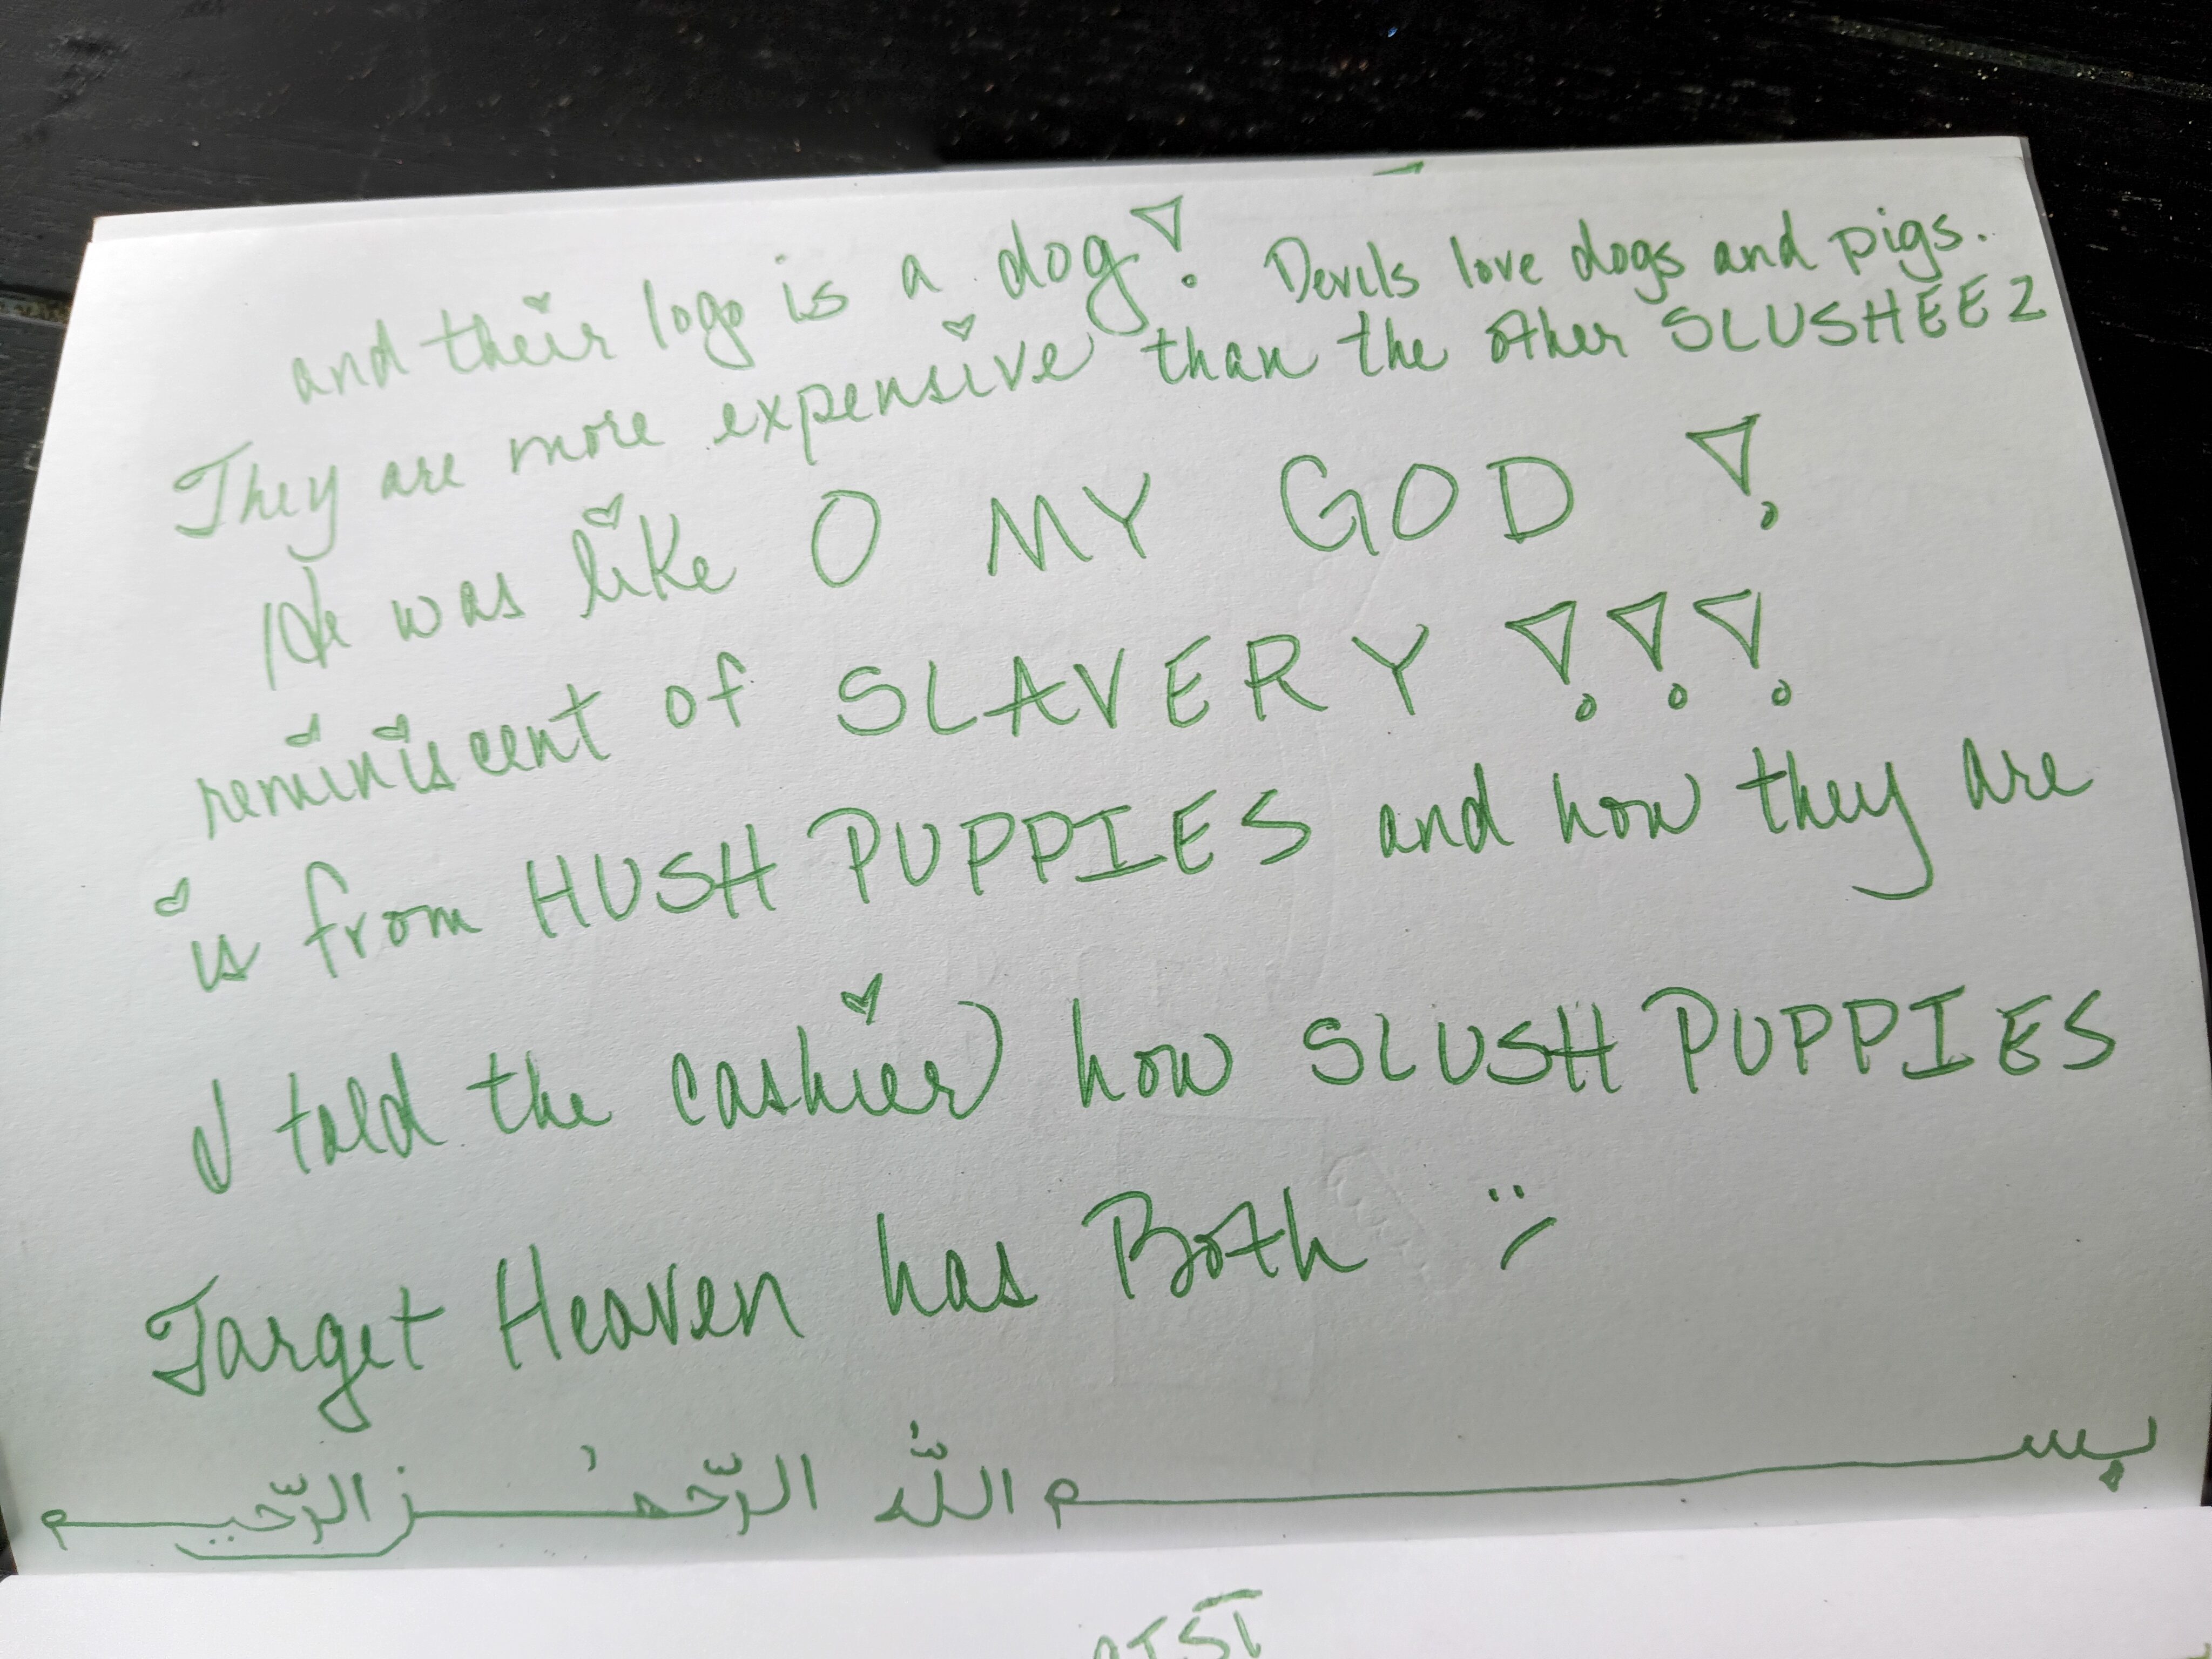 بســـم اللّٰه الرّحمٰـن الرّحيـم
Target Heaven has Both :)
I told the cashier how SLUSH PUPPIES
is from HUSH PUPPIES and how they are
reminiscent of SLAVERY !!!
He was like O MY GOD !
They are more expensive than the other SLUSHEEZ
and their logo is a dog! Devils love dogs and pigs.